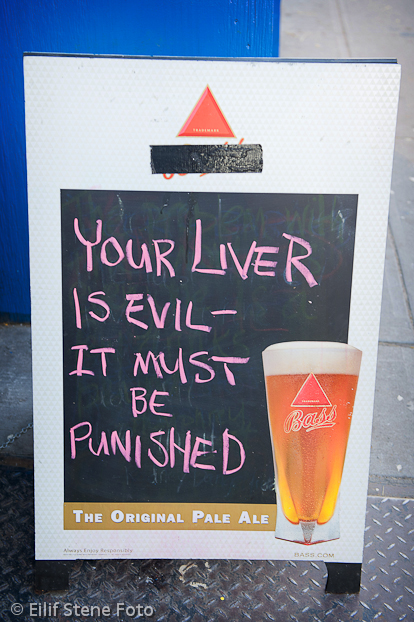 TRADEMARK
YOUR LIVER
IS EVIL—
IT MUST
BE
PUNISHED
TRADEMARK
Bass
THE ORIGINAL PALE ALE
Always Enjoy Responsibly.
BASS.COM
© Eilif Stene Foto